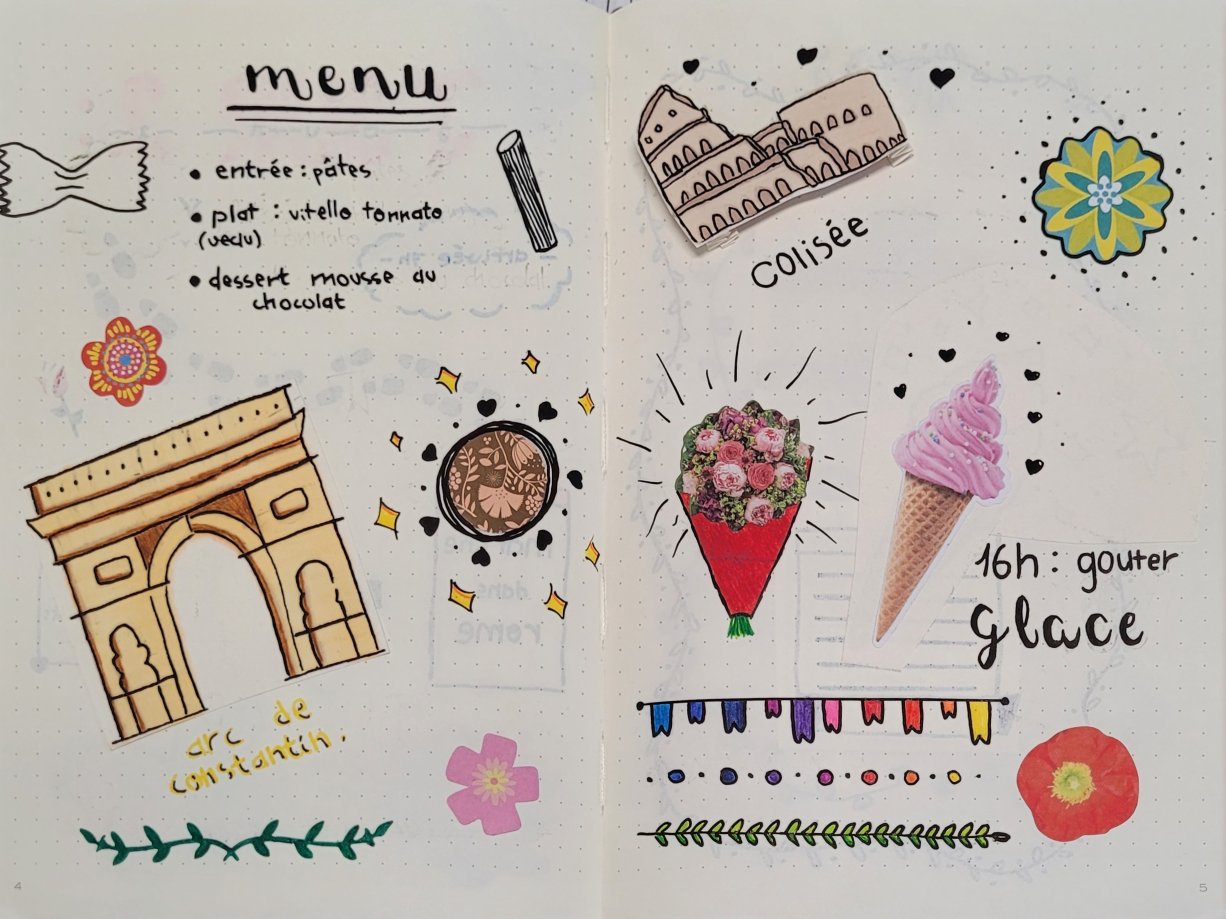 menu
• entrée : pâtes
• plat : vitello tonnato
(veau)
• dessert mousse au
chocolat
arc de
constantin.
4
colisée
16h : gouter
glace
5